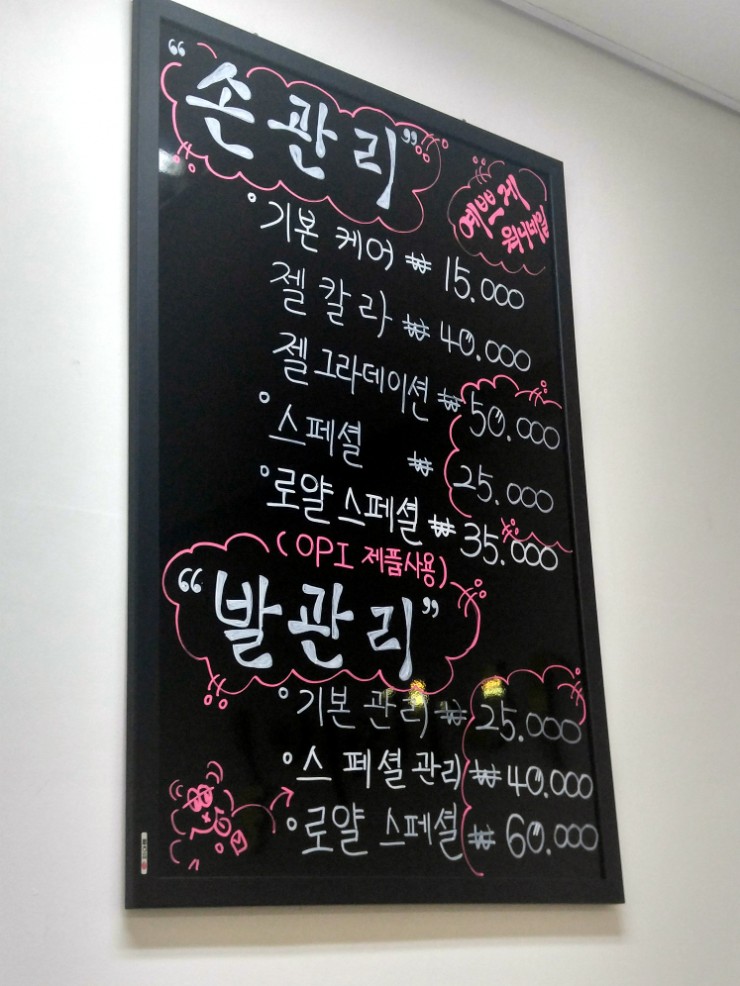 “손관리”
예쁘게
워니비일
°기본 케어 ₩ 15.000
젤 칼라 ₩ 40.000
젤그라데이션 ₩ 50.000
°스페셜 ₩ 25.000
°로얄 스페셜 ₩ 35.000
(OPI 제품사용)
“발관리”
°기본 관리 ₩ 25.000
°스 페셜관리 ₩ 40.000
°로얄 스페셜 ₩ 60.000